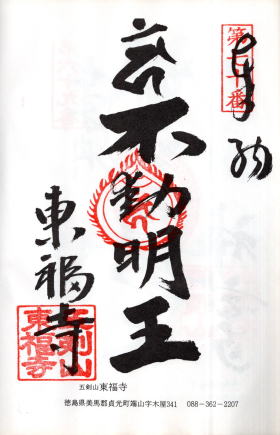 奉納
不動明王
東福寺
五剣山
東福寺
五剣山東福寺
徳島県美馬郡貞光町端山字木屋341 088-362-2207